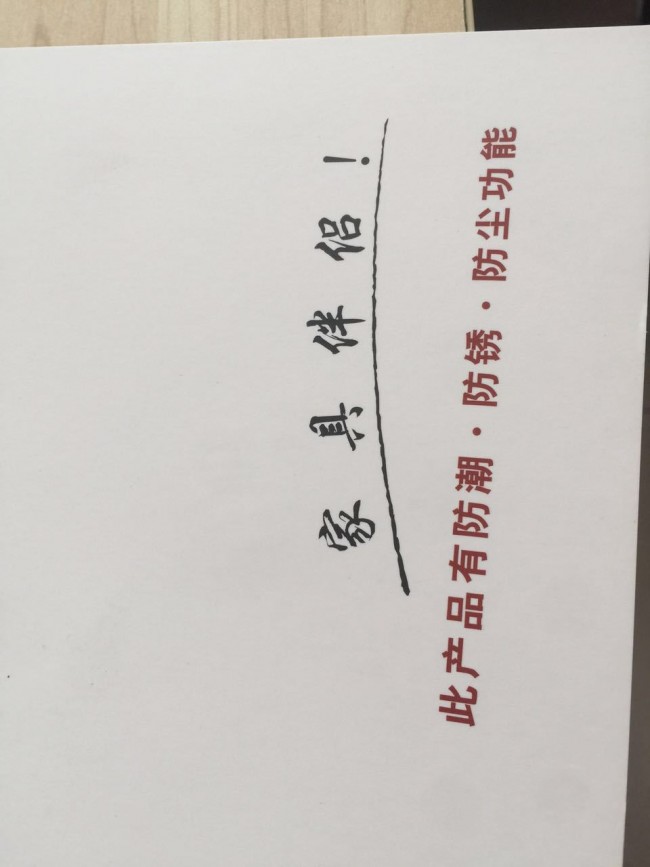 家具伴侣！
此产品有防潮·防锈·防尘功能